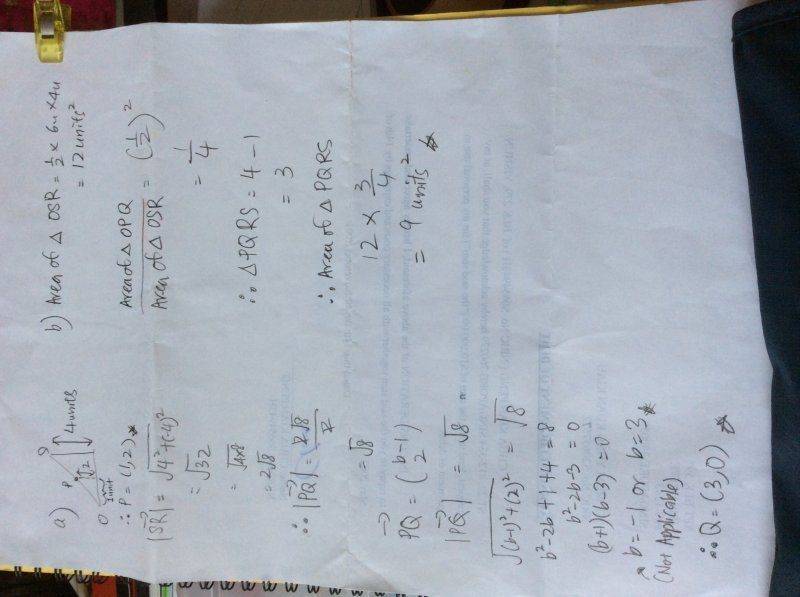 a)
P
Q
2
4 units
O
1 unit
∴ P = (1, 2)
|SR| = √(4² + (-4)²)
= √32
= √(4×8)
= 2√8
∴ |PQ| = 2√8 / 2
= √8
PQ = (b-1 / 2)
|PQ| = √8
√((b-1)² + (2)²) = √8
b² - 2b + 1 + 4 = 8
b² - 2b - 3 = 0
(b+1)(b-3) = 0
b = -1 or b = 3
(Not Applicable)
∴ Q = (3, 0)
b) Area of △ OSR = 1/2 × 6u × 4u
= 12 units²
Area of △ OPQ / Area of △ OSR = (1/2)²
= 1/4
∴ △ PQRS = 4 - 1
= 3
∴ Area of △ PQRS
12 × 3/4
= 9 units²